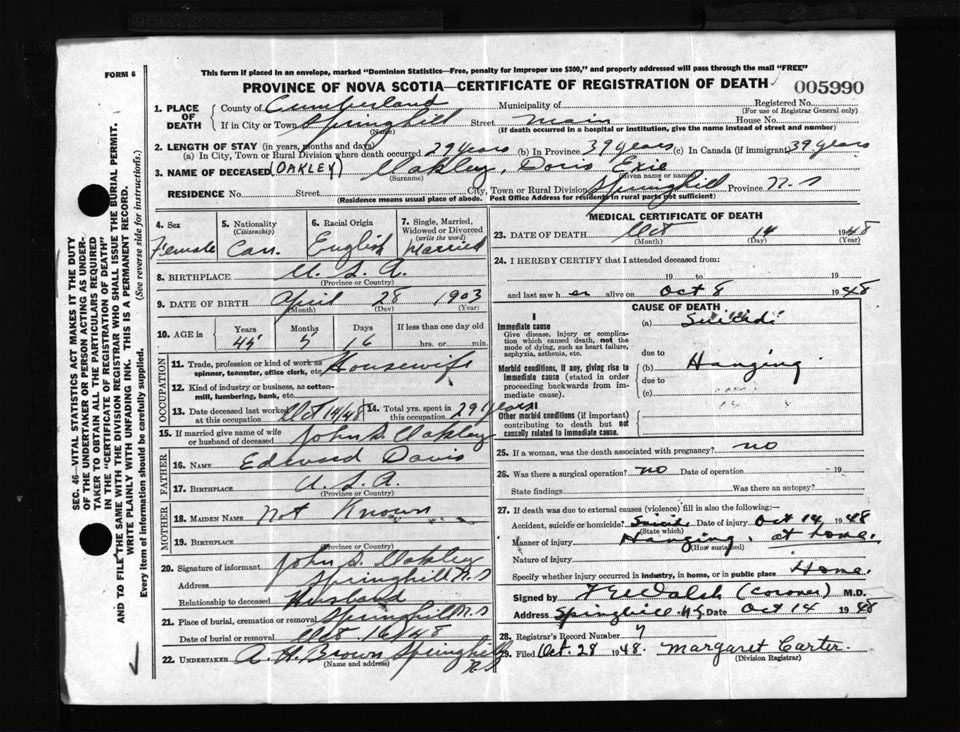 FORM 6
This form if placed in an envelope, marked "Dominion Statistics—Free, penalty for improper use $300," and properly addressed will pass through the mail "FREE"
PROVINCE OF NOVA SCOTIA—CERTIFICATE OF REGISTRATION OF DEATH
005990
1. PLACE OF DEATH
County of Cumberland Municipality of Registered No.
(For use of Registrar General only)
If in City or Town Springhill Street Main House No.
(Name) (If death occurred in a hospital or institution, give the name instead of street and number)
2. LENGTH OF STAY (in years, months and days)
(a) In City, Town or Rural Division where death occurred 29 years (b) In Province 39 years (c) In Canada (if immigrant) 39 years
3. NAME OF DECEASED (OAKLEY) Oakley, Doris
(Surname) (Given name or names)
RESIDENCE No. Street City, Town or Rural Division Springhill Province N.S
(Residence means usual place of abode. Post Office Address for residents in rural parts not sufficient)
4. Sex
Female
5. Nationality
(Citizenship)
Can.
6. Racial Origin
English
7. Single, Married, Widowed or Divorced
(write the word)
Married
8. BIRTHPLACE U. S. A.
(Province or Country)
9. DATE OF BIRTH April 28 1903
(Month) (Day) (Year)
10. AGE in
Years Months Days If less than one day old
45 5 16 hrs. or min.
OCCUPATION
11. Trade, profession or kind of work as spinner, teamster, office clerk, etc. Housewife
12. Kind of industry or business, as cotton-mill, lumbering, bank, etc.
13. Date deceased last worked at this occupation Oct 14/48
14. Total yrs. spent in this occupation 29 years
15. If married give name of wife or husband of deceased John S. Oakley
FATHER
16. NAME Edward Davis
17. BIRTHPLACE U. S. A.
(Province or Country)
MOTHER
18. MAIDEN NAME Not Known
19. BIRTHPLACE
(Province or Country)
20. Signature of informant John S. Oakley
Address Springhill N.S
Relationship to deceased Husband
21. Place of burial, cremation or removal Springhill N.S
Date of burial or removal Oct. 16/48
22. UNDERTAKER A. H. Brown Springhill
N.S
(Name and address)
MEDICAL CERTIFICATE OF DEATH
23. DATE OF DEATH Oct 14 1948
(Month) (Day) (Year)
24. I HEREBY CERTIFY that I attended deceased from:
19 to 19
and last saw her alive on Oct 8 1948
CAUSE OF DEATH
I
Immediate cause
Give disease, injury or complication which caused death, not the mode of dying, such as heart failure, asphyxia, asthenia, etc.
(a) Suicide
due to
Morbid conditions, if any, giving rise to immediate cause (stated in order proceeding backwards from immediate cause).
(b) Hanging
due to
(c)
II
Other morbid conditions (if important) contributing to death but not causally related to immediate cause.
25. If a woman, was the death associated with pregnancy? no
26. Was there a surgical operation? no Date of operation 19
State findings Was there an autopsy?
27. If death was due to external causes (violence) fill in also the following:—
Accident, suicide or homicide? Suicide Date of injury Oct 14 1948
(State which)
Manner of injury Hanging, at home.
(How sustained)
Nature of injury
Specify whether injury occurred in industry, in home, or in public place Home.
Signed by Walsh (Coroner) M.D.
Address Springhill N.S. Date Oct 14 1948
28. Registrar's Record Number 7
29. Filed Oct. 28 1948. Margaret Carter.
(Division Registrar)
SEC. 46—VITAL STATISTICS ACT MAKES IT THE DUTY
OF THE UNDERTAKER OR PERSON ACTING AS UNDER-
TAKER TO OBTAIN ALL THE PARTICULARS REQUIRED
IN THE "CERTIFICATE OF REGISTRATION OF DEATH"
AND TO FILE THE SAME WITH THE DIVISION REGISTRAR WHO SHALL ISSUE THE BURIAL PERMIT.
WRITE PLAINLY WITH UNFADING INK. THIS IS A PERMANENT RECORD.
Every item of information should be carefully supplied. (See reverse side for instructions).